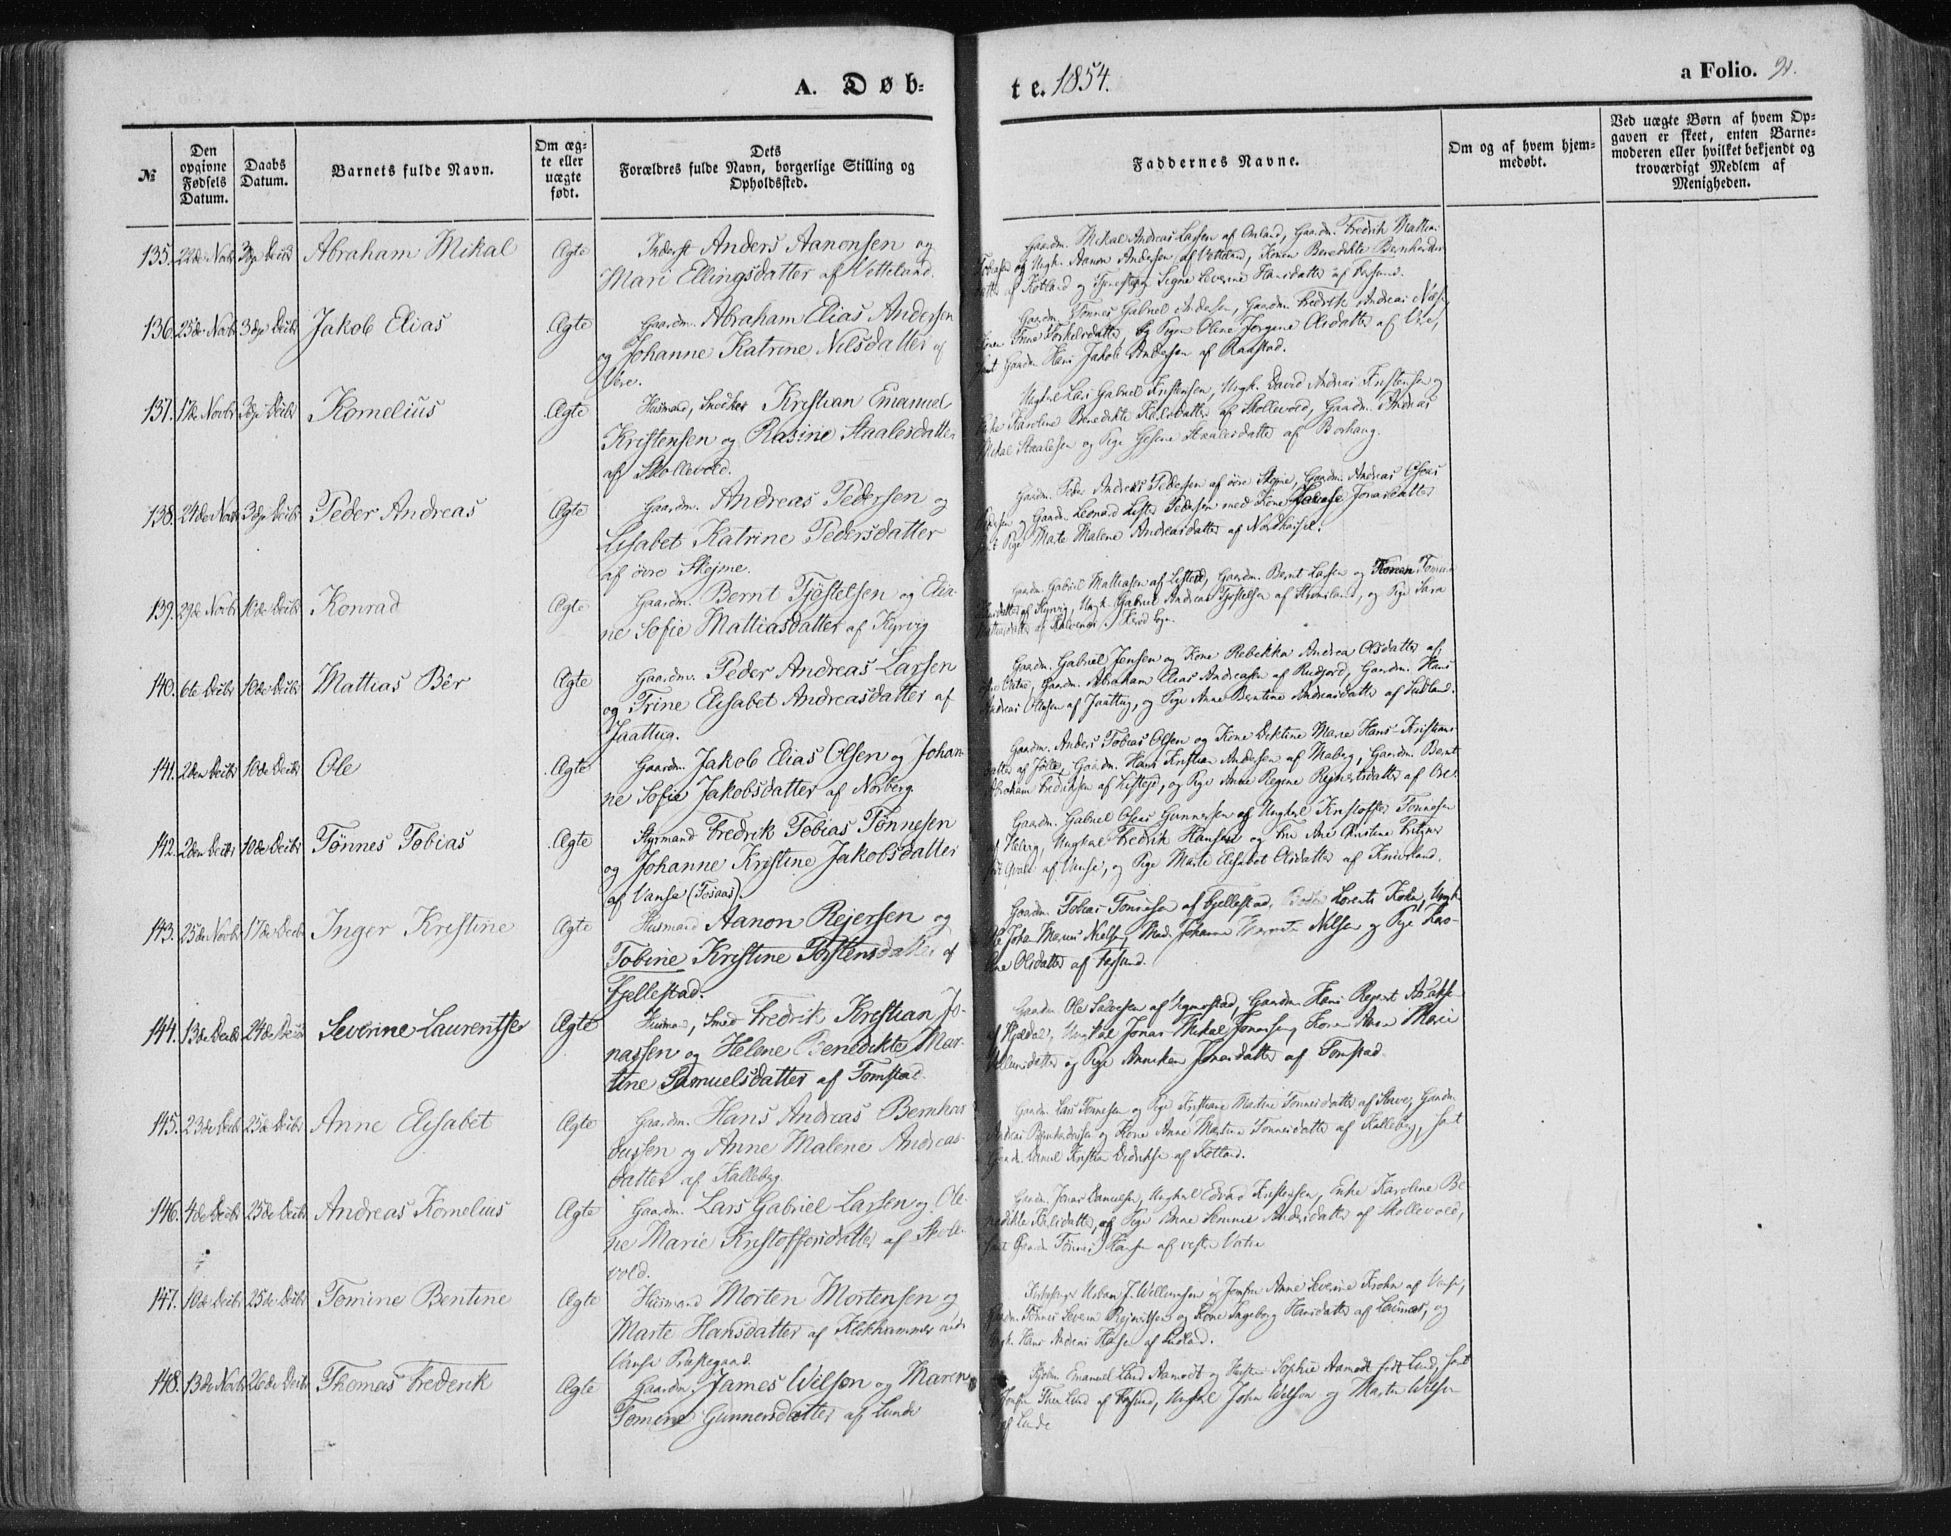 A. Døb-
te. 1854.
a Folio. 91.
№
Den opgivne Fødsels Datum.
Daabs Datum.
Barnets fulde Navn.
Om ægte eller uægte født.
Dets Forældres fulde Navn, borgerlige Stilling og Opholdssted.
Faddernes Navne.
Om og af hvem hjemmedøbt.
Ved uægte Børn af hvem Opgaven er skeet, enten Barnemoderen eller hvilket bekjendt og troværdigt Medlem af Menigheden.
135. 22de Novbr 3die Decbr Abraham Mikal Ægte Inderst Anders Aanonsen og
Mari Ellingsdatter af Vetteland.
Gaardm. Mikal Andreas Larsen af Omland, Gaardm. Fredrik Mattias
Tobiasen og Ungk. Aanon Andersen af Vetteland, Konen Benedikte Bernhardus
datter af Kotland og Tjenestepige Signe Severine Hansdatter af Farsund.
136. 23de Novbr 3die Decbr Jakob Elias Ægte Gaardm. Abraham Elias Andersen
og Johanne Katrine Nilsdatter af
Vere.
Gaardm. Tønnes Gabriel Andersen, Gaardm. Fredrik Andreas
Konen Trine Torkelsdatter og Pigen Oline Jørgine Olsdatter af Vere,
samt Gaardm. Hans Jakob Andersen af Raastad.
137. 17de Novbr 3die Decbr Kornelius Ægte Husmand, Snedker Kristian Emanuel
Kristensen og Rasine Staalesdatter
af Skollevold.
Ungkarl Lars Gabriel Kristensen, Ungk. David Andreas Kristensen og
Enke Karoline Benedikte Kielsdatter af Skollevold, Gaardm. Andreas
Mikal Staalesen og Pige Gesine Staalesdatter af Borhaug.
138. 24de Novbr 3die Decbr Peder Andreas Ægte Gaardm. Andreas Pedersen og
Lisabet Katrine Pedersdatter
af øvre Skejme.
Gaardm. Peder Andreas Pedersen af øvre Skejme, Gaardm. Andreas Oseas
Pedersen og Gaardm. Leonard Lister Pedersen med Kone Jonasdatter
samt Pige Marte Malene Andreasdatter af Nordhassel.
139. 29de Novbr 10de Decbr Konrad Ægte Gaardm. Bernt Tjøstelsen og Elia-
ne Sofie Mattiasdatter af Kyrvig
Gaardm. Gabriel Mattiasen af Listeid, Gaardm. Bernt Larsen og Konen Tomine
af Kyrvig, Ungk. Gabriel Andreas Tjøstelsen af , og Pige Sara
Mattiasdatter af
140. 6te Decbr 10de Decbr Mattias Bêr Ægte Gaardm. Peder Andreas Larsen
og Trine Elisabet Andreasdatter af
Jaattug.
Gaardm. Gabriel Jensen og Kone Rebekka Andrea Olsdatter af
Vatne, Gaardm. Abraham Elias Andreasen af Rudjord, Gaardm. Hans
Andreas Olsen af Jaattug, og Pige Anne Berntine Andreasdatter af Sudland.
141. 2den Decbr 10de Decbr Ole Ægte Gaardm. Jakob Elias Olsen og Johan-
ne Sofie Jakobsdatter af Norberg
Gaardm. Anders Tobias Olsen og Kone Maria Hans Kristians-
datter af Jølle, Gaardm. Hans Kristian Andersen af Maberg, Gaardm. Bernt
Abraham Fredriksen af Listeid, og Pige Anne Regine Rejnertsdatter af Ore.
142. 2den Decbr 10de Decbr Tønnes Tobias Ægte Styrmand Fredrik Tobias Tønnesen
og Johanne Kristine Jakobsdatter
af Vanse (Tosaas).
Gaardm. Gabriel Oseas Gunnersen og Ungkarl Kristoffer Tønnesen
af , Ungkarl Fredrik Hansen og Fru Ane Christine Fritzner
født Qvale af Vanse, og Pige Marte Elisabet Olsdatter af Knivsland.
143. 25de Novbr 17de Decbr Inger Kristine Ægte Husmand Aanon Rejersen og
Tobine Kristine Torstensdatter af
Fjellestad.
Gaardm. Tobias Tønnesen af Fjellestad, Lorents Krohn, Ungk.
Johan Marius Nielsen, Mad. Johanne Nilsen og Pige Karo-
line Olsdatter af Farsund.
144. 13de Decbr 24de Decbr Severine Laurentse Ægte Husmd, Smed Fredrik Kristian Jo-
nassen og Helene Benedikte Mar-
tine Samuelsdatter af Tomstad.
Gaardm. Ole Salvesen af Vigmostad, Gaardm. Hans Rejert
af , Ungkarl Jonas Mikal Jonassen, Konen Anna Marie
Villumsdatter og Pige Anniken Jonasdatter af Tomstad.
145. 23de Decbr 25de Decbr Anne Elisabet Ægte Gaardm. Hans Andreas Bernhar-
dussen og Anne Malene Andreas-
datter af Kalleberg.
Gaardm. Lars Tønnesen og Pige Kristiane Martine Tønnesdatter af Stave, Gaardm.
Andreas Bernhardussen og Kone Anne Martine Tønnesdatter af Kalleberg, samt
Gaardm. Daniel Kristian Didriksen af Kotland.
146. 4de Decbr 25de Decbr Andreas Kornelius Ægte Gaardm. Lars Gabriel Larsen og Ole-
ne Marie Kristoffersdatter af Skolle-
vold.
Gaardm. Jonas Danielsen, Ungkarl Edvard Kristensen, Enke Karoline Be-
nedikte Kielsdatter, og Pige Anne Andersdatter af Skollevold,
samt Gaardm. Tønnes J. Hansen af vestre Vatne
147. 10de Decbr 25de Decbr Tomine Bentine Ægte Husmand Morten Mortensen og
Marte Hansdatter af Klokhammer under
Vanse Præstegaard.
Kirkesanger Urban J. Willumsen og Jomfru Anne Severine Krohn af Vanse,
Gaardm. Tønnes Severin Rejnertsen og Kone Ingeborg Hansdatter af , og
Ungk. Hans Andreas Hansen af Sudland.
148. 13de Novbr 26de Decbr Thomas Frederik Ægte Gaardm. James Wilson og Maren
Tomine Gunnersdatter af Lunde
Emanuel Lund Aamodt og Sophie Aamodt født Lund, samt
Jomfru Thea Lund af Farsund, Ungkarl John Wilson og Martin Wilson
af Lunde